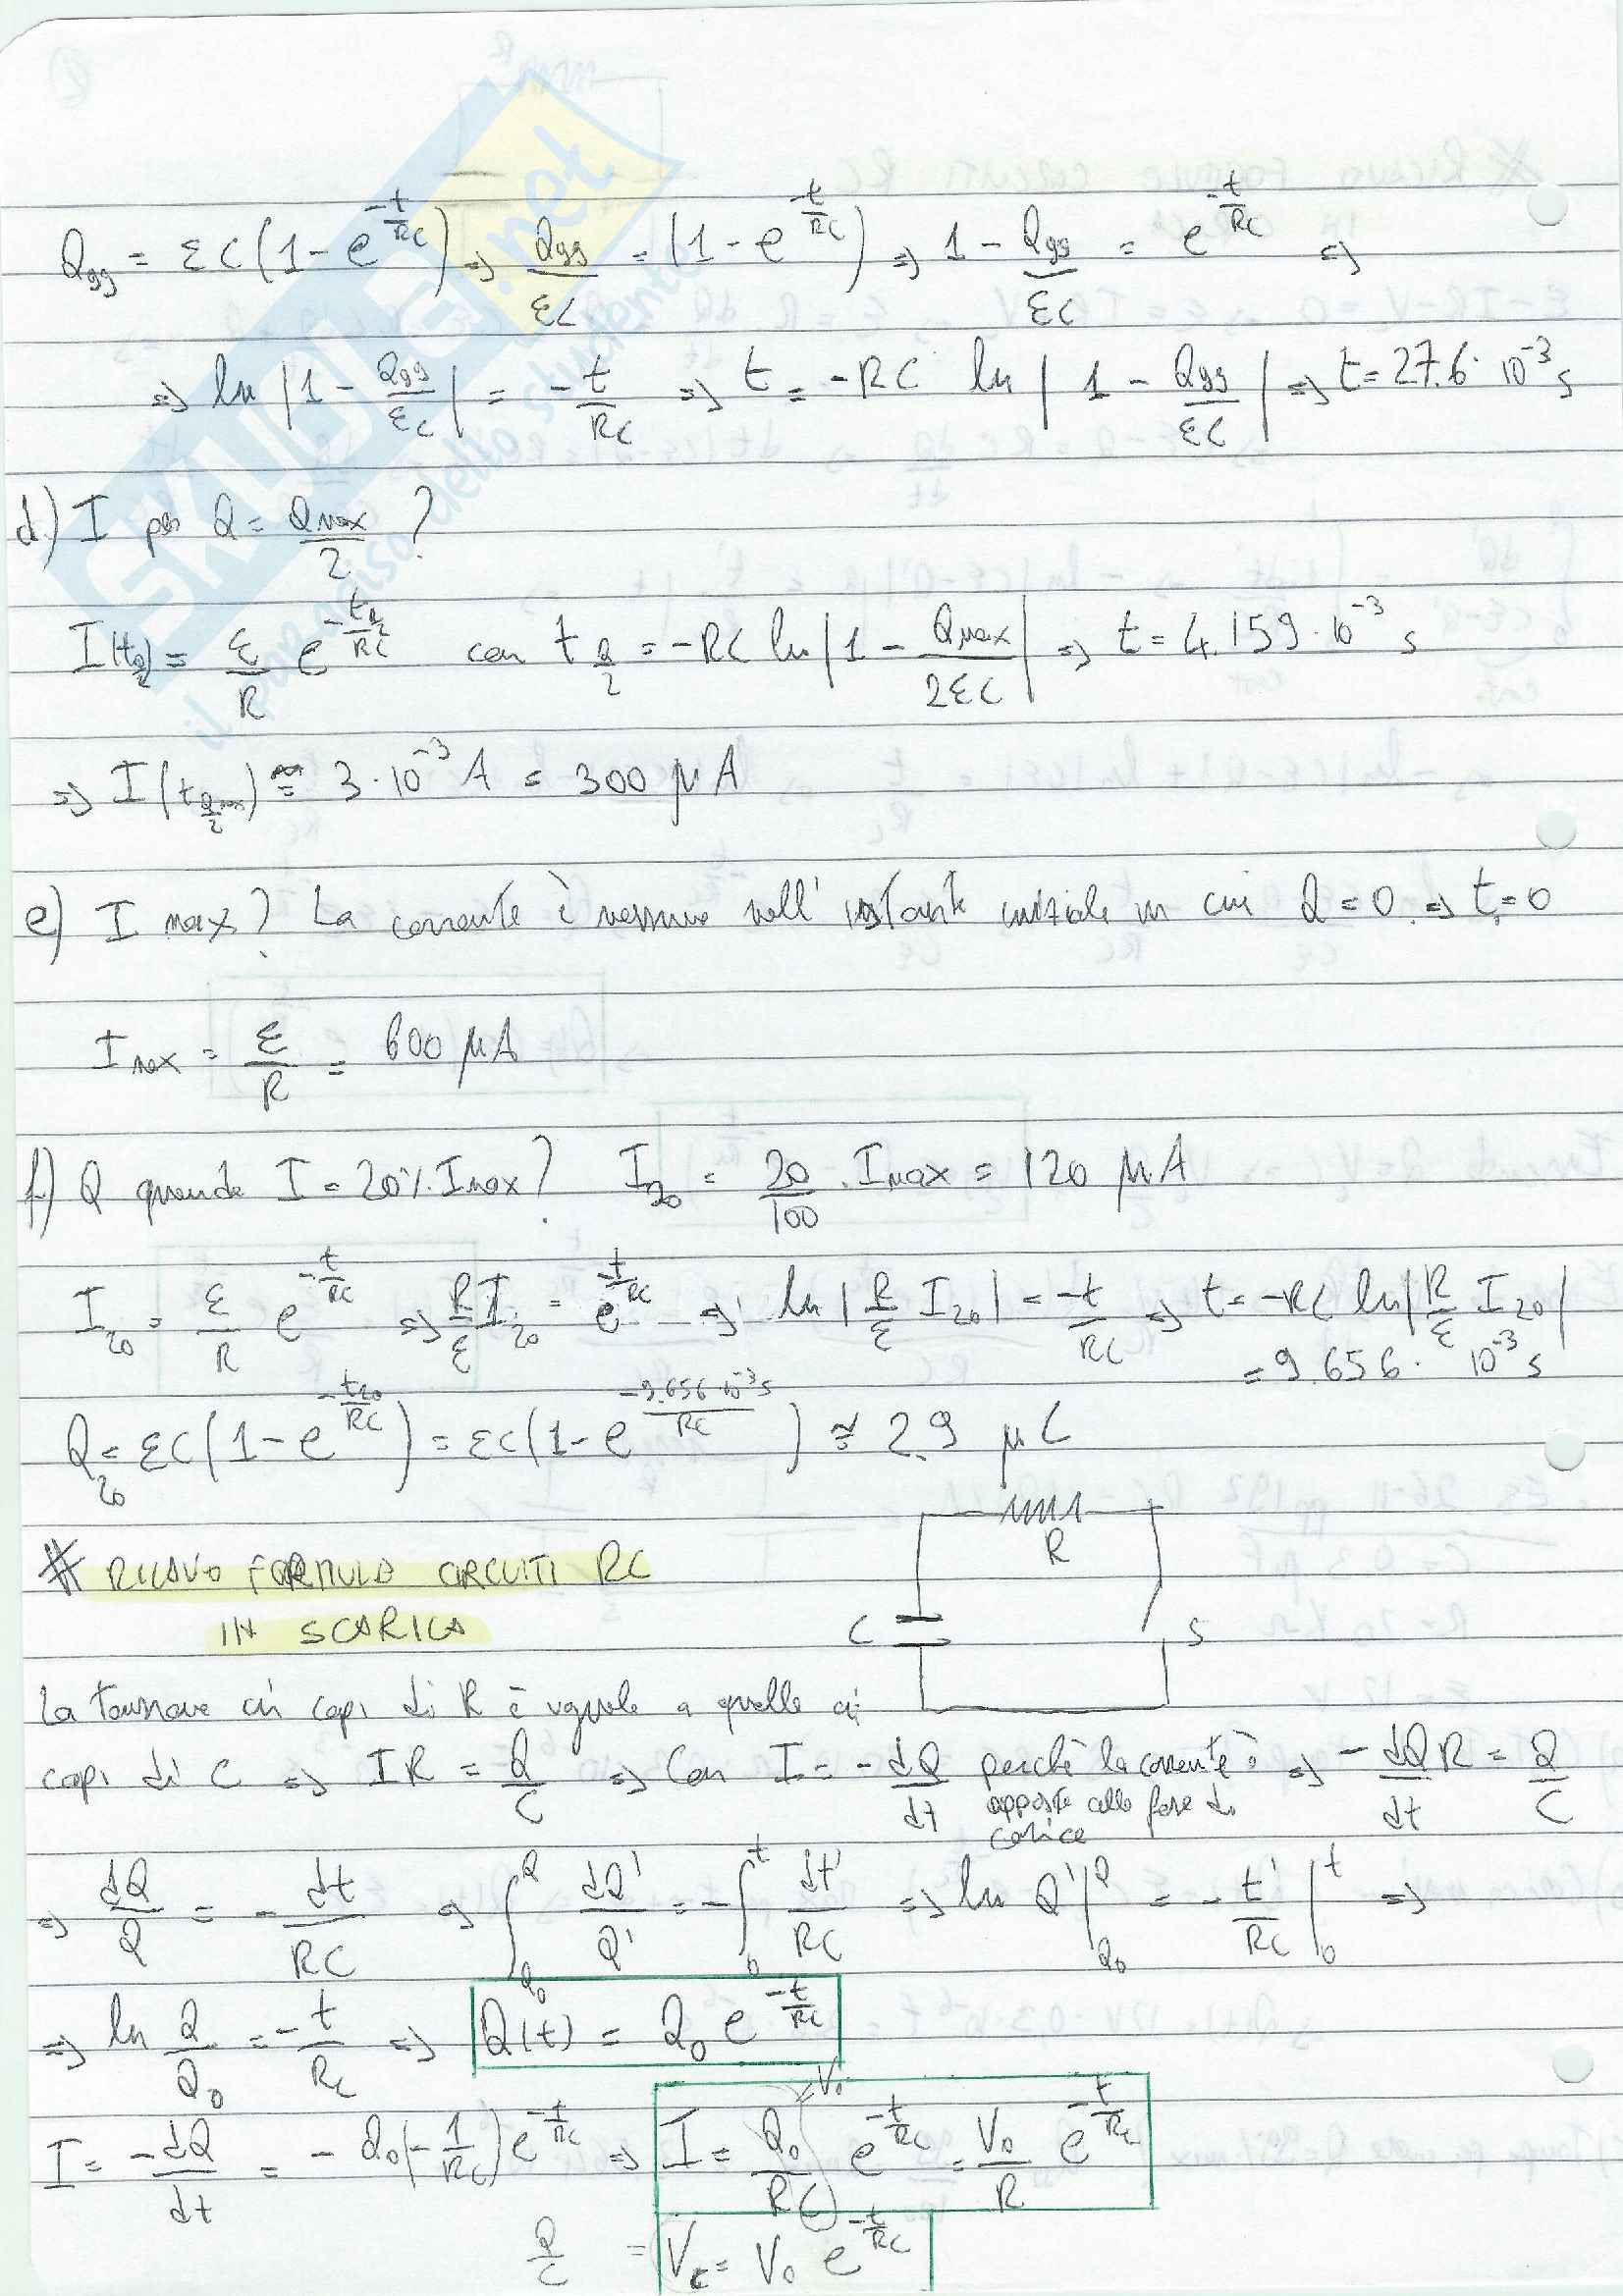 Q₉₉ = εC(1 - e^(-t/RC)) => Q₉₉/εC = (1 - e^(-t/RC)) => 1 - Q₉₉/εC = e^(-t/RC) =>
=> ln|1 - Q₉₉/εC| = -t/RC => t = -RC ln|1 - Q₉₉/εC| => t = 27.6·10⁻³ s
d) I per Q = Qmax/2 ?
I(t_Q/2) = ε/R e^(-t_Q/2/RC) con t_Q/2 = -RC ln|1 - Qmax/2εC| => t = 4.159·10⁻³ s
=> I(t_Qmax/2) ≈ 3·10⁻³ A = 300 μA
e) I max? La corrente è massima nell'instante iniziale in cui Q = 0 => t = 0
Imax = ε/R = 600 μA
f) Q quando I = 20% Imax? I₂₀ = 20/100 · Imax = 120 μA
I₂₀ = ε/R e^(-t/RC) => R/ε I₂₀ = e^(-t/RC) => ln|R/ε I₂₀| = -t/RC => t = -RC ln|R/ε I₂₀|
= 9.656·10⁻³ s
Q₂₀ = εC(1 - e^(-t₂₀/RC)) = εC(1 - e^(-9.656·10⁻³s/RC)) ≈ 2.9 μC
* RICAVO FORMULE CIRCUITI RC
IN SCARICA
R
C
S
La tensione ai capi di R è uguale a quella ai
capi di C => IR = Q/C => Con I = -dQ/dt perché la corrente è opposta alla fase di carica => -dQ/dt R = Q/C
=> dQ/Q = -dt/RC => ∫_Q₀^Q dQ'/Q' = -∫_0^t dt'/RC => ln Q'|_Q₀^Q = -t'/RC|_0^t =>
=> ln Q/Q₀ = -t/RC => Q(t) = Q₀ e^(-t/RC)
I = -dQ/dt = -Q₀(-1/RC)e^(-t/RC) => I = Q₀/RC e^(-t/RC) = V₀/R e^(-t/RC)
= V₀
Q/C = Vc = V₀ e^(-t/RC)
SKUOLA.net
il paradiso dello studente